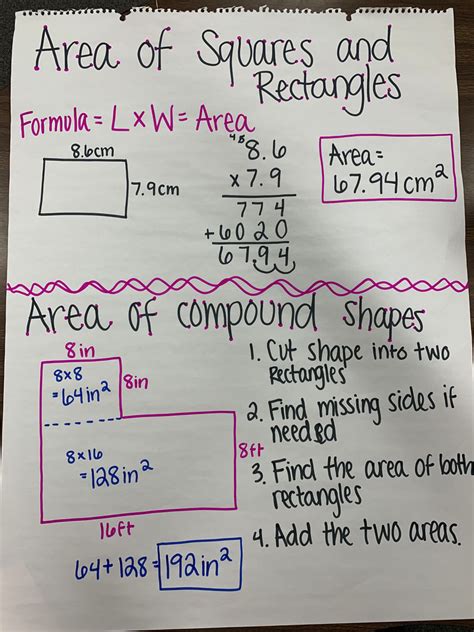 Area of Squares and
Rectangles
Formula = L x W = Area
8.6cm
7.9cm
45
8.6
x 7.9
774
+6020
67.94
Area =
67.94 cm²
Area of compound shapes
8in
8x8
=64in²
8in
8x16
=128in²
8ft
16ft
64+128=192in²
1. Cut shape into two
Rectangles
2. Find missing sides if
needed
3. Find the area of both
rectangles
4. Add the two areas.